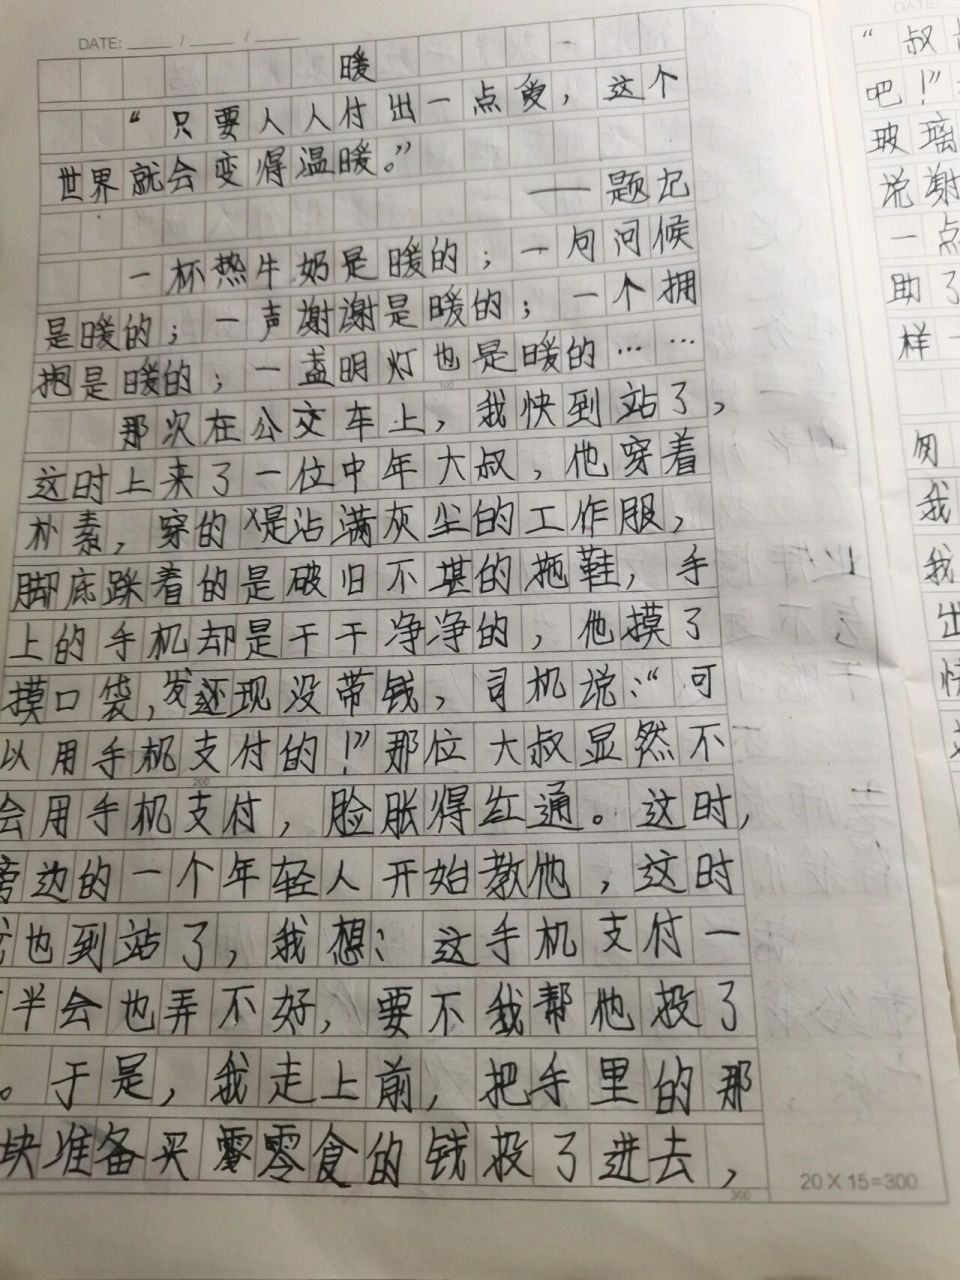 DATE: ____ / ____ / ____
暖
“只要人人付出一点爱，这个
世界就会变得温暖。”
——题记
一杯热牛奶是暖的；一句问候
是暖的；一声谢谢是暖的；一个拥
抱是暖的；一盏明灯也是暖的……
100
那次在公交车上，我快到站了，
这时上来了一位中年大叔，他穿着
朴素，穿的是沾满灰尘的工作服，
脚底踩着的是破旧不堪的拖鞋，手
上的手机却是干干净净的，他摸了
摸口袋，发现没带钱，司机说：“可
以用手机支付的！”那位大叔显然不
200
会用手机支付，脸胀得红通。这时，
旁边的一个年轻人开始教他，这时
也到站了，我想：这手机支付一
半会也弄不好，要不我帮他投了
。于是，我走上前，把手里的那
块准备买零零食的钱投了进去，
300
20×15=300
“叔
吧！”
玻璃
说谢
一点
助了
样一
匆
我
我
出
快